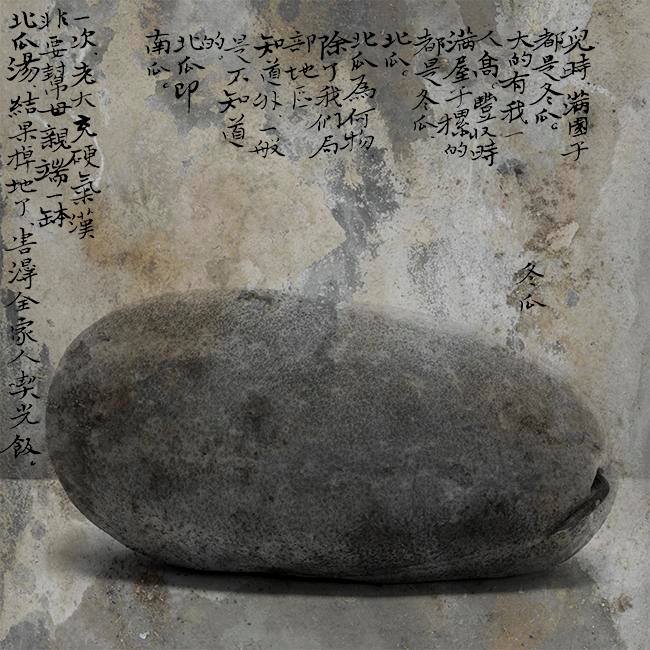 兒時，滿園子
都是冬瓜。
大的有我一
人高。豐收時
滿屋子摞的
都是冬瓜、
北瓜。
北瓜為何物
除了我们局
部地区
知道外，一般
是不知道
的。
北瓜即
南瓜。
一次，老大充硬氣漢
非要幫母親端一缽
北瓜湯，結果掉地了，害得全家人喫光飯。
冬瓜